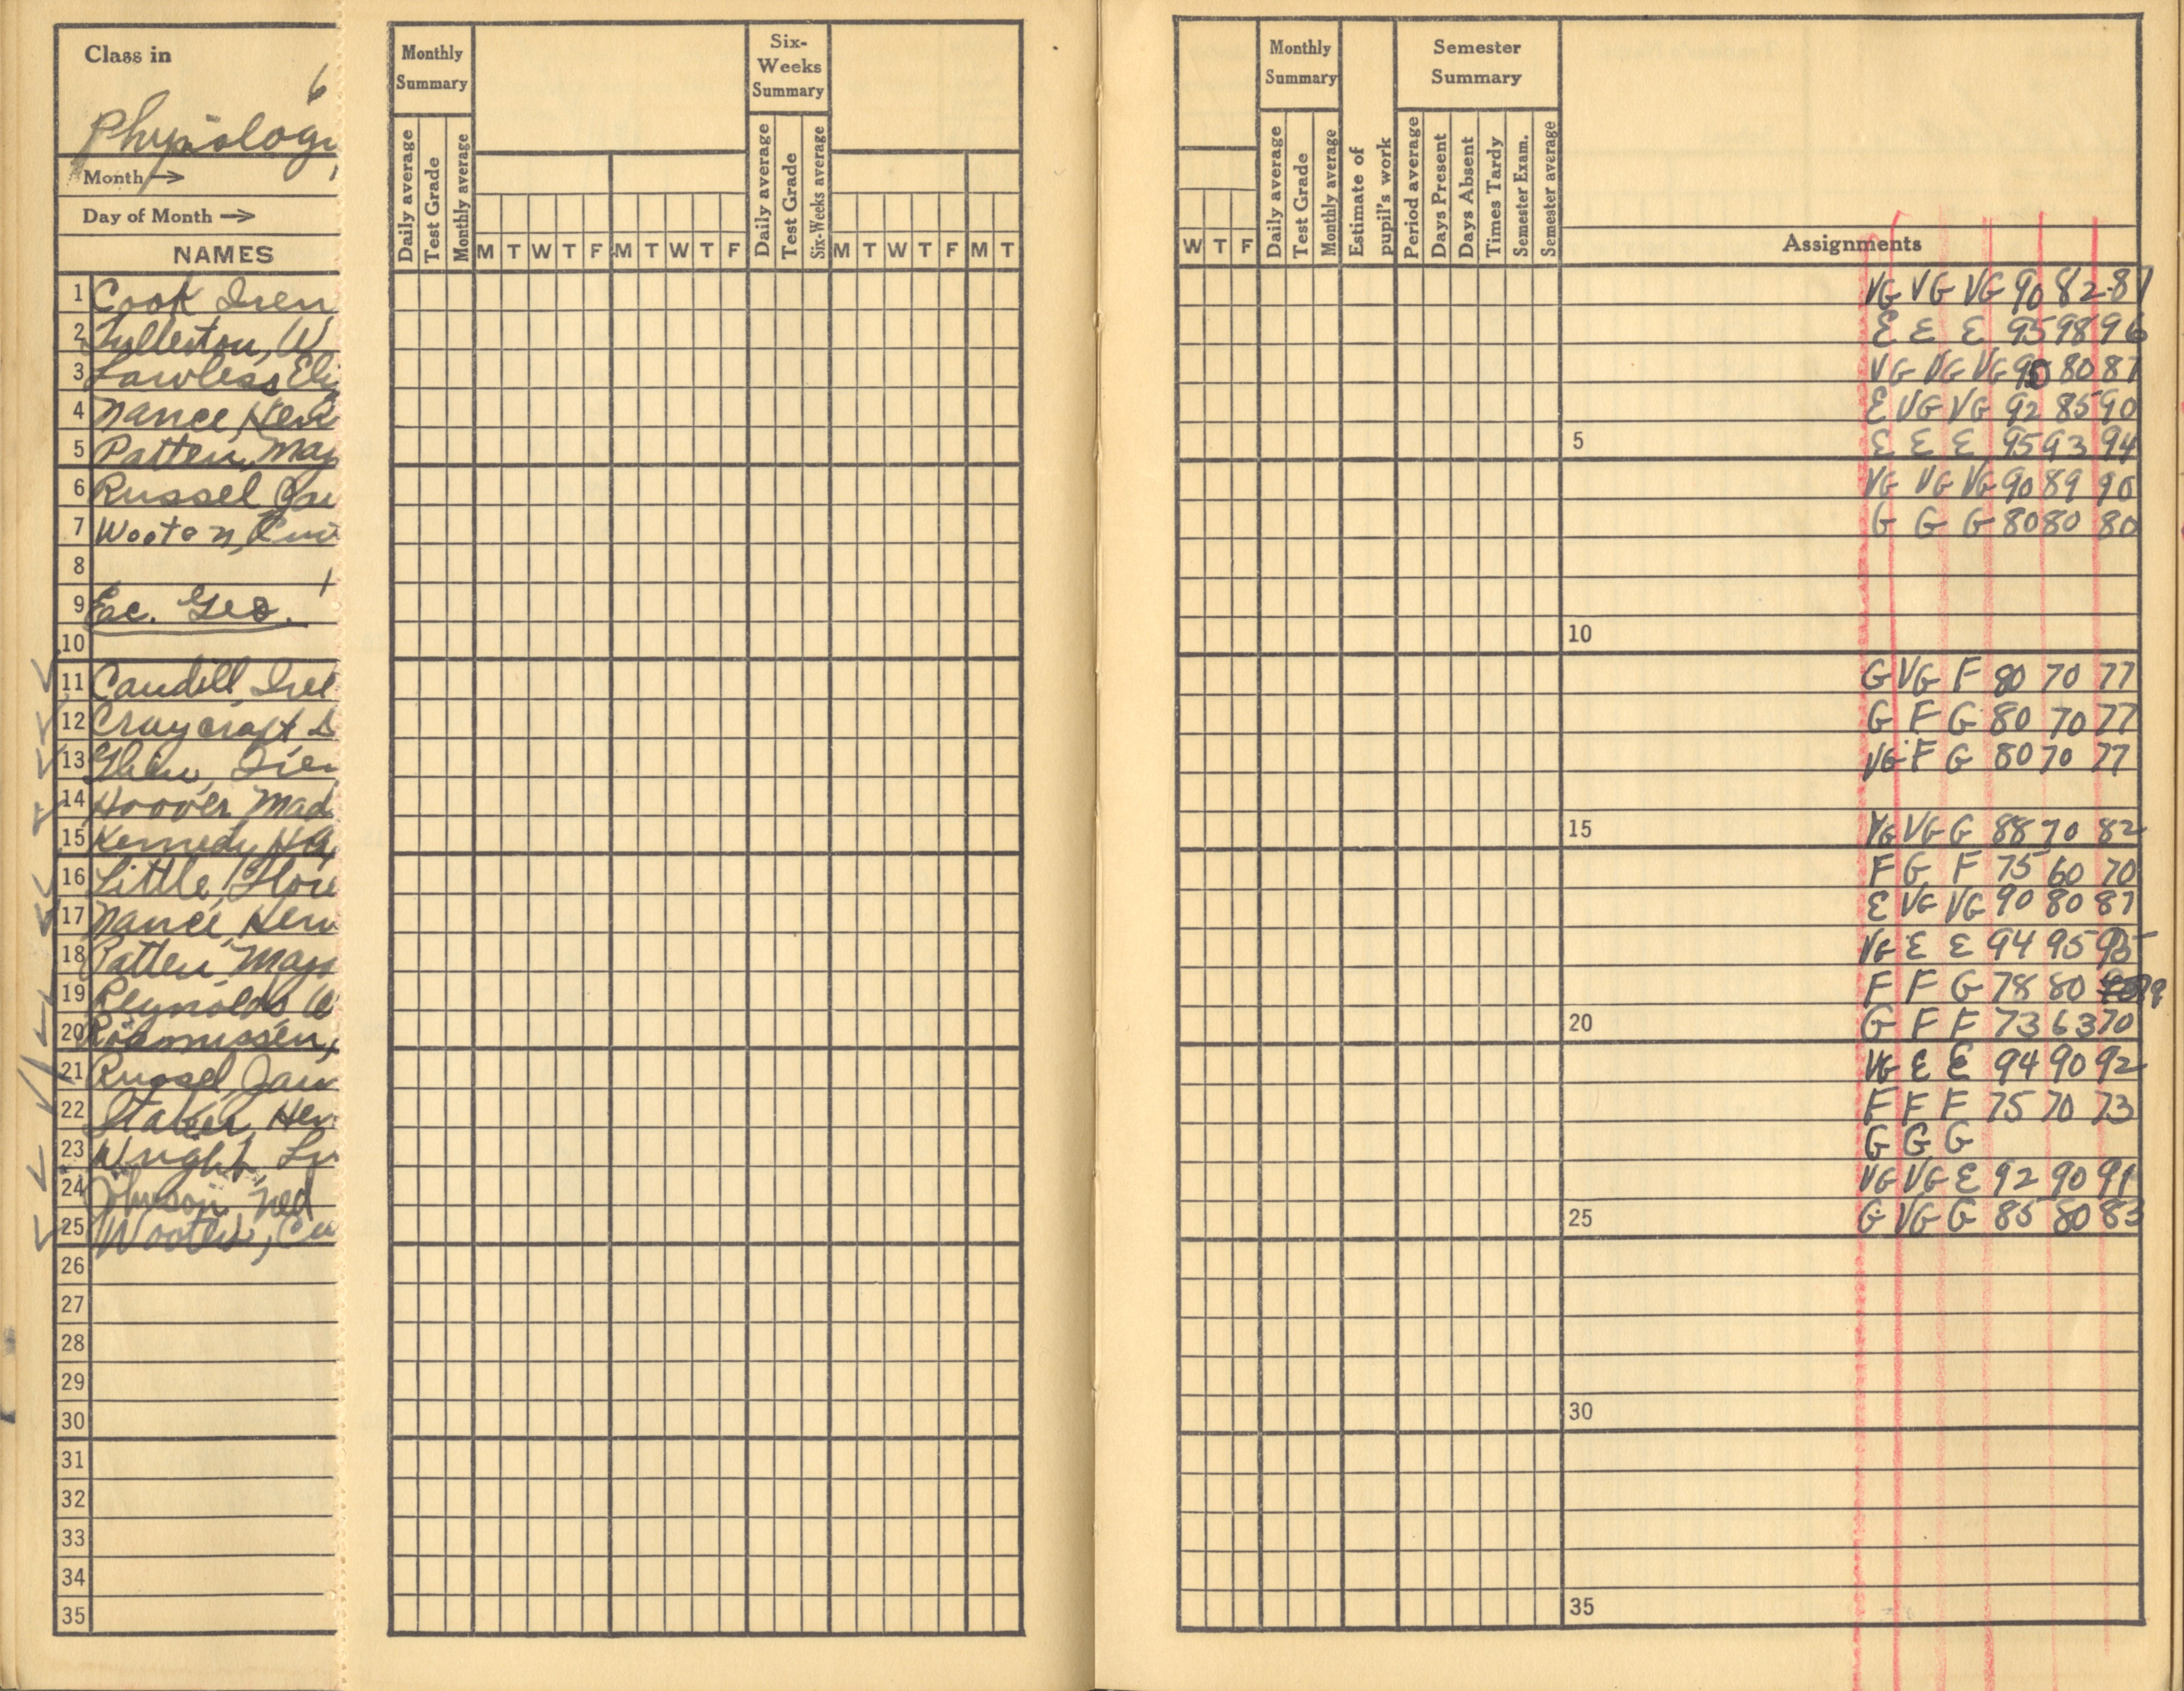 Class in
6
Physiology
Month →
Day of Month →
NAMES
1 Cook Iren
2 Fullerton, W
3 Lawless Eliz
4 Nance, Hen
5 Patten, May
6 Russel Jan
7 Wooten,
8
9 Ec. Geo.
10
11 Caudill
12 Craycraft
13
14 Hoover Mad
15 Kennedy,
16 Little, Flore
17 Nance, Hen
18 Patten, May
19 Reynolds
20 Rasmussen,
21 Russel, Jan
22 Staker, Hen
23 Wright,
24 Johnson, Ned
25 Wooten, Cu
26
27
28
29
30
31
32
33
34
35
Monthly Summary
Six-Weeks Summary
Daily average
Test Grade
Monthly average
Daily average
Test Grade
Six-Weeks average
M T W T F M T W T F
M T W T F M T
Monthly Summary
Semester Summary
Daily average
Test Grade
Monthly average
Estimate of pupil's work
Period average
Days Present
Days Absent
Times Tardy
Semester Exam.
Semester average
W T F
Assignments
VG VG VG 90 82 87
E E E 95 98 96
VG VG VG 90 80 87
E VG VG 92 85 90
5 E E E 95 93 94
VG VG VG 90 89 90
G G G 80 80 80
10
G VG F 80 70 77
G F G 80 70 77
VG F G 80 70 77
15 VG VG G 88 70 82
F G F 75 60 70
E VG VG 90 80 87
VG E E 94 95 95
F F G 78 80 79
20 G F F 73 63 70
VG E E 94 90 92
F F F 75 70 73
G G G
VG VG E 92 90 91
25 G VG G 85 80 83
30
35